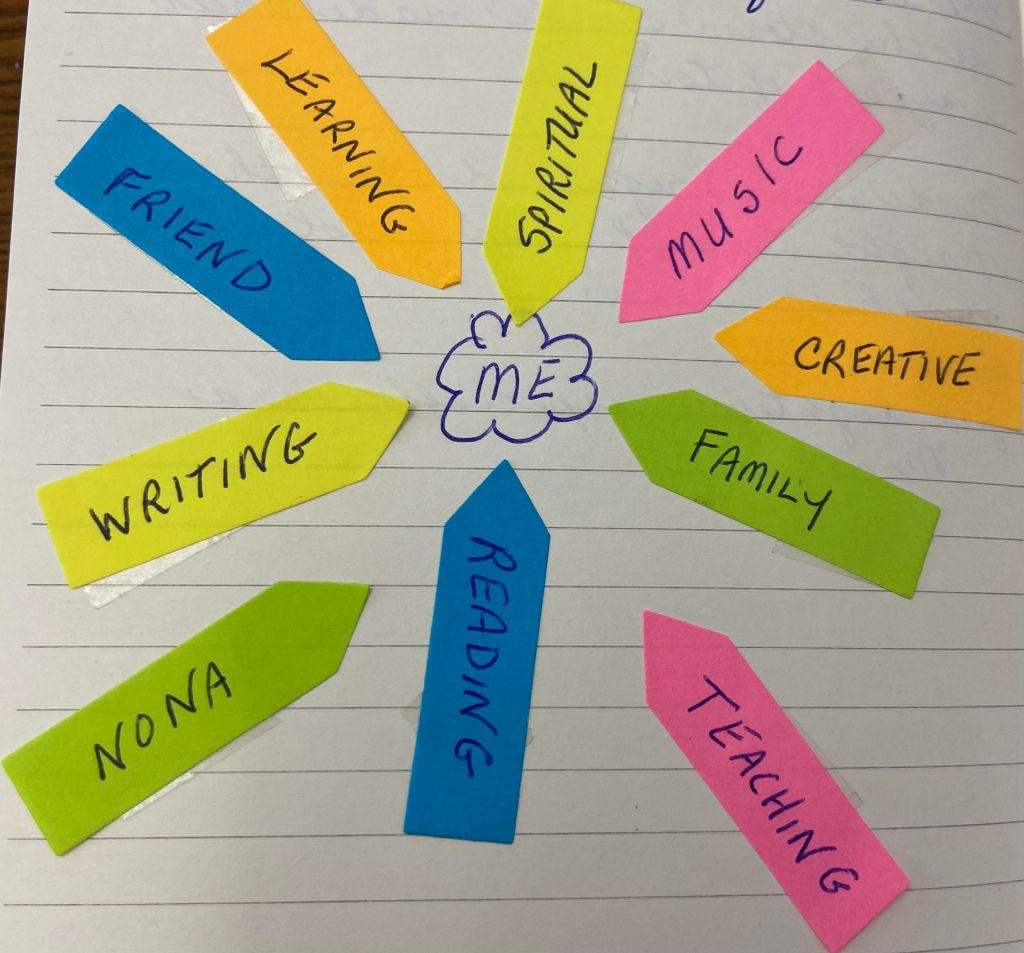 LEARNING
SPIRITUAL
MUSIC
FRIEND
CREATIVE
ME
FAMILY
WRITING
READING
NONA
TEACHING